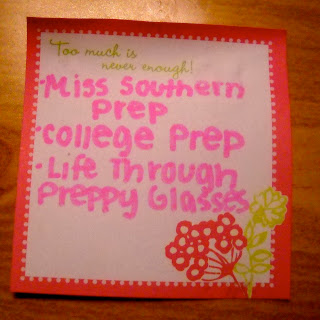 Too much is
never enough!
·Miss Southern
Prep
·College Prep
·Life Through
Preppy Glasses